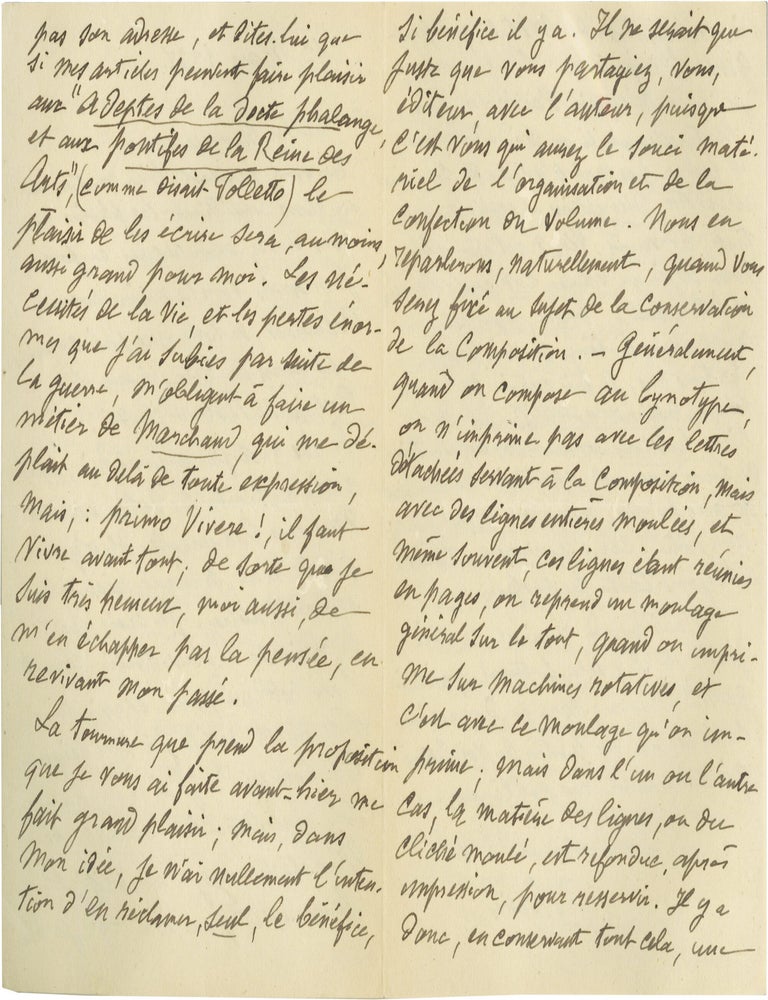 pas son adresse, et dites-lui que
si mes articles peuvent faire plaisir
aux "Adeptes de la docte phalange,
et aux pontifes de la Reine des
Arts", (comme disait Tolletto) le
plaisir de les écrire sera, au moins,
aussi grand pour moi. Les né-
cessités de la vie, et les pertes énor-
mes que j'ai subies par suite de
la guerre, m'obligent à faire un
métier de Marchand, qui me dé-
plait au delà de toute expression,
mais, : primo Vivere !, il faut
vivre avant tout ; de sorte que je
suis très heureux, moi aussi, de
m'en échapper par la pensée, en
revivant mon passé.
La tournure que prend la proposition
que je vous ai faite avant-hier me
fait grand plaisir ; mais, dans
mon idée, je n'ai nullement l'inten-
tion d'en réclamer, seul, le bénéfice,
si bénéfice il y a. Il ne serait que
juste que vous partagiez, vous,
éditeur, avec l'auteur, puisque
c'est vous qui aurez le souci maté-
riel de l'organisation et de la
confection du volume. Nous en
reparlerons, naturellement, quand vous
serez fixé au sujet de la conservation
de la composition. – Généralement,
quand on compose au lynotype,
on n'imprime pas avec les lettres
détachées servant à la composition, mais
avec des lignes entières moulées, et
même souvent, ces lignes étant réunies
en pages, on reprend un moulage
général sur le tout, quand on impri-
me sur machines rotatives, et
c'est avec ce moulage qu'on im-
prime ; mais dans l'un ou l'autre
cas, la matière des lignes, ou du
cliché moulé, est refondue, après
impression, pour resservir. Il y a
donc, en conservant tout cela, une